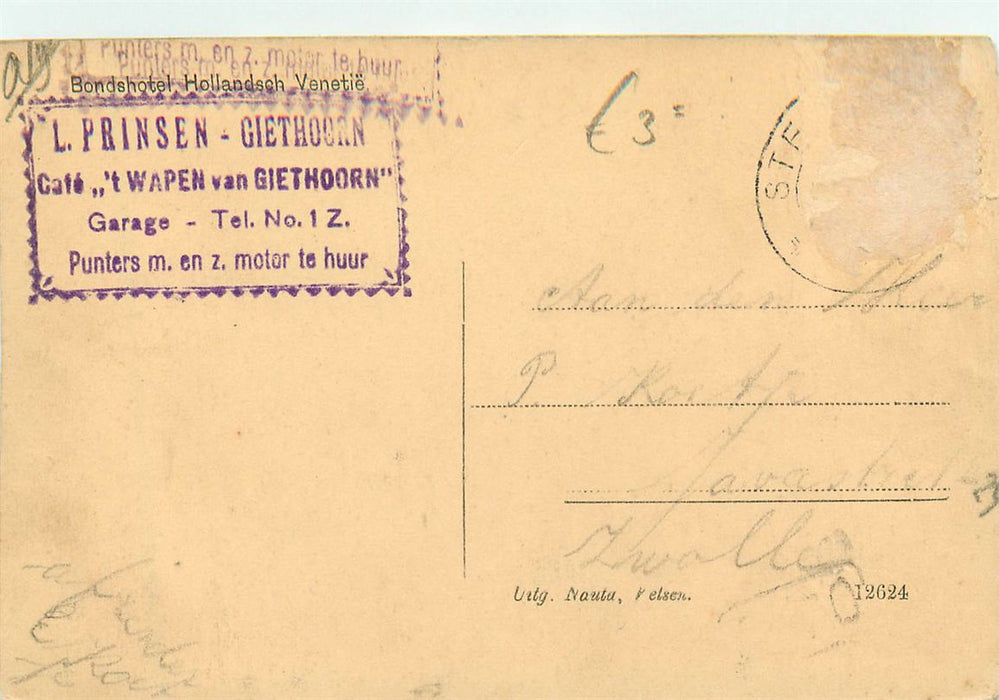 Punters m. en z. motor te huur
Punters m. en z. motor te huur
Bondshotel Hollandsch Venetië
L. PRINSEN - GIETHOORN
Café „'t WAPEN van GIETHOORN"
Garage - Tel. No. 1 Z.
Punters m. en z. motor te huur
€ 3 =
STE
Aan den Heer
P.
Javastr
Zwolle
Uitg. Nauta, Velsen.
12624